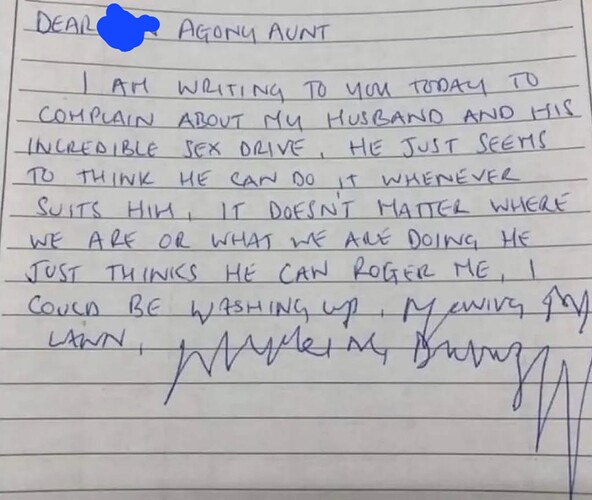 DEAR AGONY AUNT
I AM WRITING TO YOU TODAY TO
COMPLAIN ABOUT MY HUSBAND AND HIS
INCREDIBLE SEX DRIVE, HE JUST SEEMS
TO THINK HE CAN DO IT WHENEVER
SUITS HIM, IT DOESNT MATTER WHERE
WE ARE OR WHAT WE ARE DOING HE
JUST THINKS HE CAN ROGER ME, I
COULD BE WASHING UP,
LAWN,